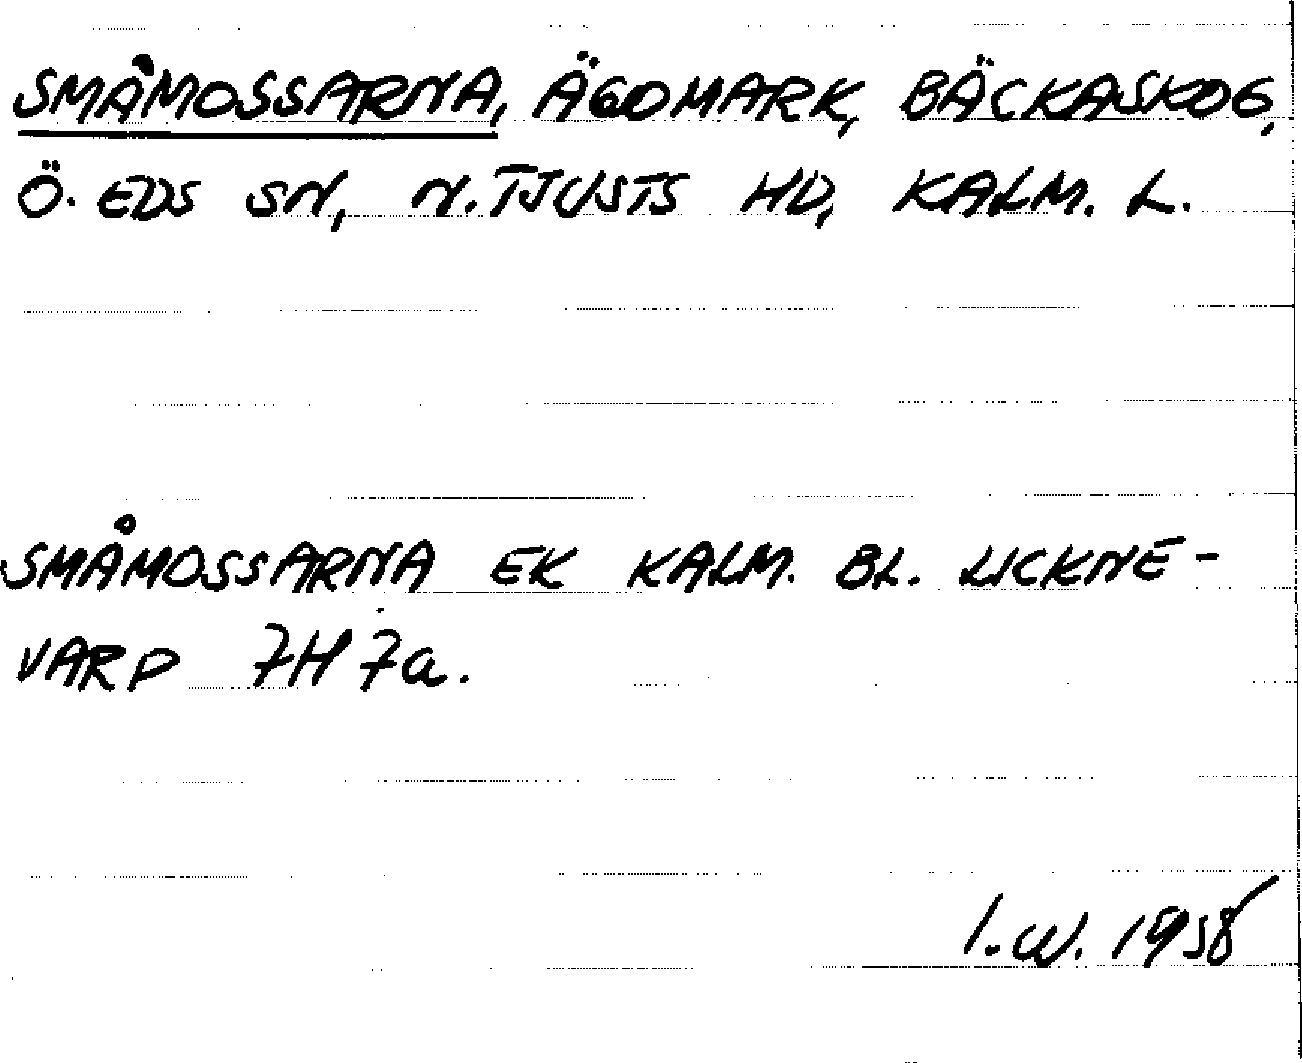 SMÅMOSSARNA, ÄGOMARK, BÄCKASKOG,
Ö. EDS SN, N. TJUSTS HD, KALM. L.
SMÅMOSSARNA EK KALM. BL. LICKNE-
VARP 7H 7a.
I.W. 1958